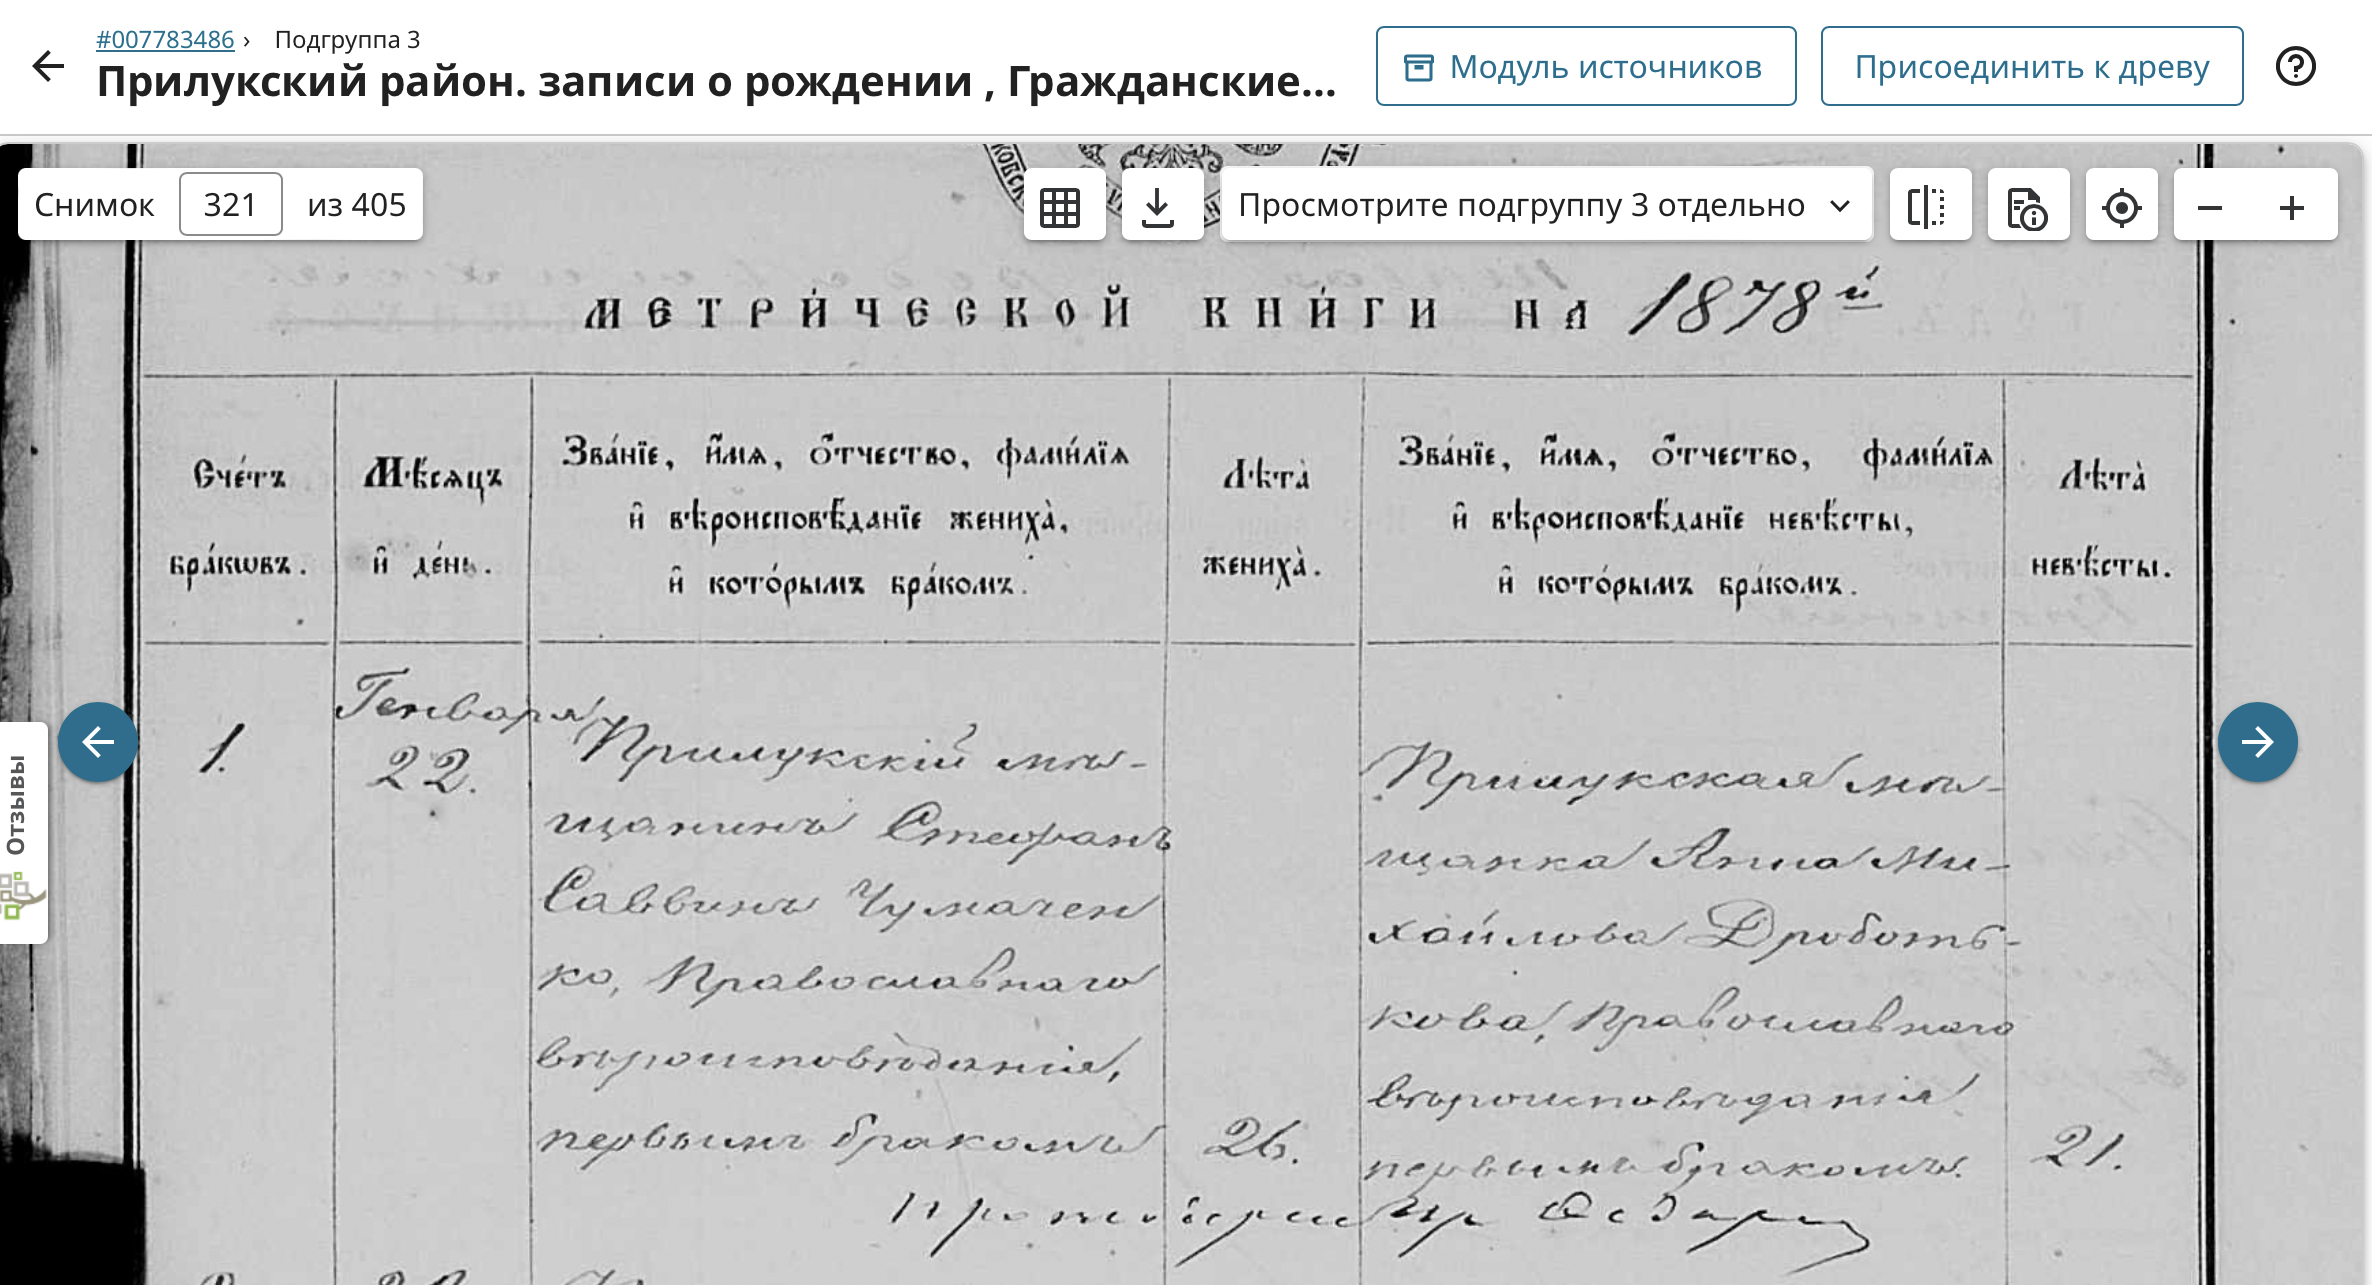 #007783486 › Подгруппа 3
Прилукский район. записи о рождении , Гражданские...
Модуль источников
Присоединить к древу
Снимок 321 из 405
Просмотрите подгруппу 3 отдельно
Отзывы
МЕТРИ́ЧЕСКОЙ КНИ́ГИ НА 1878й
Сче́тъ бра́кѡвъ.
Мѣ́сѧцъ и҆ де́нь.
Зва́нїе, и҆́мѧ, ѻ҆́тчество, фами́лїѧ
и҆ вѣроисповѣ́данїе жениха̀,
и҆ кото́рымъ бра́комъ.
Лѣта̀ жениха̀.
Зва́нїе, и҆́мѧ, ѻ҆́тчество, фами́лїѧ
и҆ вѣроисповѣ́данїе невѣ́сты,
и҆ кото́рымъ бра́комъ.
Лѣта̀ невѣ́сты.
1.
Генваря
22.
Прилукскій мѣ-
щанинъ Стефанъ
Саввинъ Чумачен
ко, Православнаго
вѣроисповѣданія,
первымъ бракомъ
26.
Прилукская мѣ-
щанка Анна Ми-
хайлова Дроботь-
кова, Православнаго
вѣроисповѣданія
первымъ бракомъ.
21.
Протоіерей